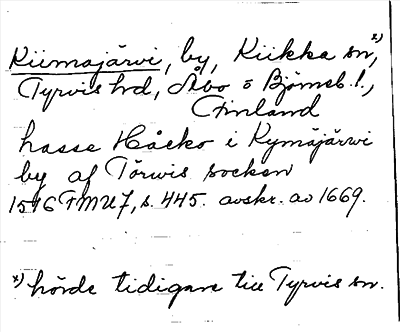 Kiimajärvi, by, Kiikka sn, x)
Tyrvis hd, Åbo o Björneb. l.,
Finland
hasse Håcko i Kymäjärwi
by af Törwis socken
1516 FMU 7, s. 445. avskr. av 1669.
x) hörde tidigare till Tyrvis sn.